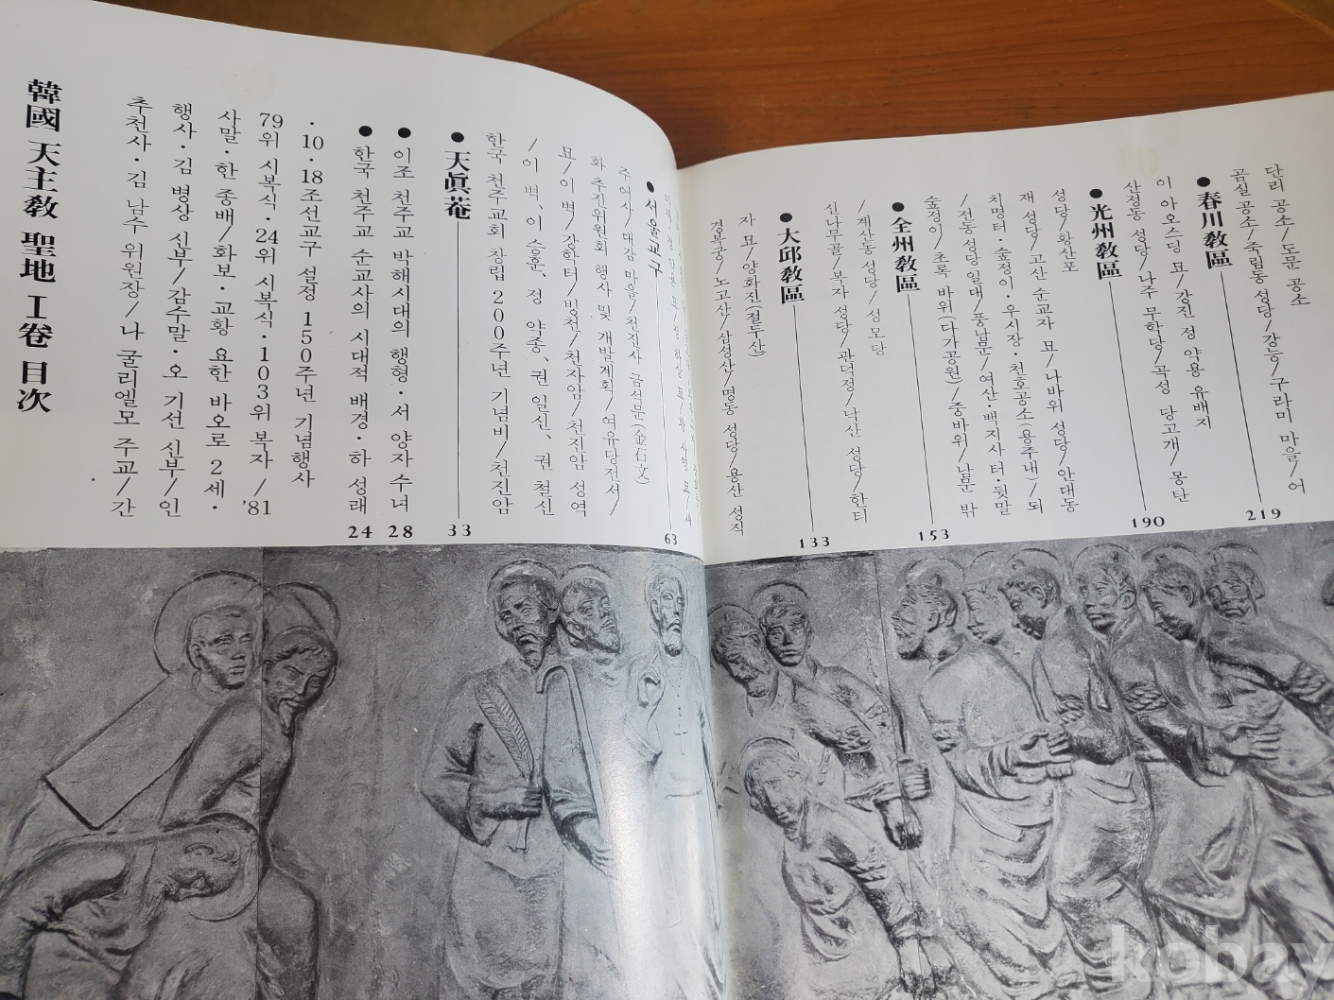 韓國 天主敎 聖地 I卷 目次
추천사・김 남수 위원장/나 굴리엘모 주교/간
행사・김 병상 신부/감수말・오 기선 신부/인
사말・한 종배/화보・교황 요한 바오로 2세・
79위 시복식・24위 시복식・103위 복자/'81
・10・18조선교구 설정 150주년 기념행사
● 한국 천주교 순교사의 시대적 배경・하 성래 24
● 이조 천주교 박해시대의 행형・서 양자 수녀 28
● 天眞菴 33
한국 천주교회 창립 200주년 기념비/천진암
/이 벽, 이 승훈, 정 약종, 권 일신, 권 철신
묘/이 벽/강학터/빙천/천자암/천진암 성역
화 추진위원회 행사 및 개발계획/여유당전서/
주어사/대감 마을/천진사 금석문(金石文)
● 서울교구 63
경복궁/노고산/삼성산/명동 성당/용산 성직
자 묘/양화진(절두산)
● 大邱敎區 133
신나무골/복자 성당/관덕정/낙산 성당/한티
/계산동 성당/성모당
● 全州敎區 153
숲정이/초록 바위(다가공원)/중바위/남문 밖
/전동 성당 일대/풍남문/여산・백지사터・뒷말
치명터・숲정이・우시장・천호공소(용주내)/되
재 성당/고산 순교자 묘/나바위 성당/안대동
성당/황산포
● 光州敎區 190
산정동 성당/나주 무학당/곡성 당고개/몽탄
이 아오스딩 묘/강진 정 약용 유배지
● 春川敎區 219
곰실 공소/죽림동 성당/강릉/구라미 마을/어
단리 공소/도문 공소
kobay